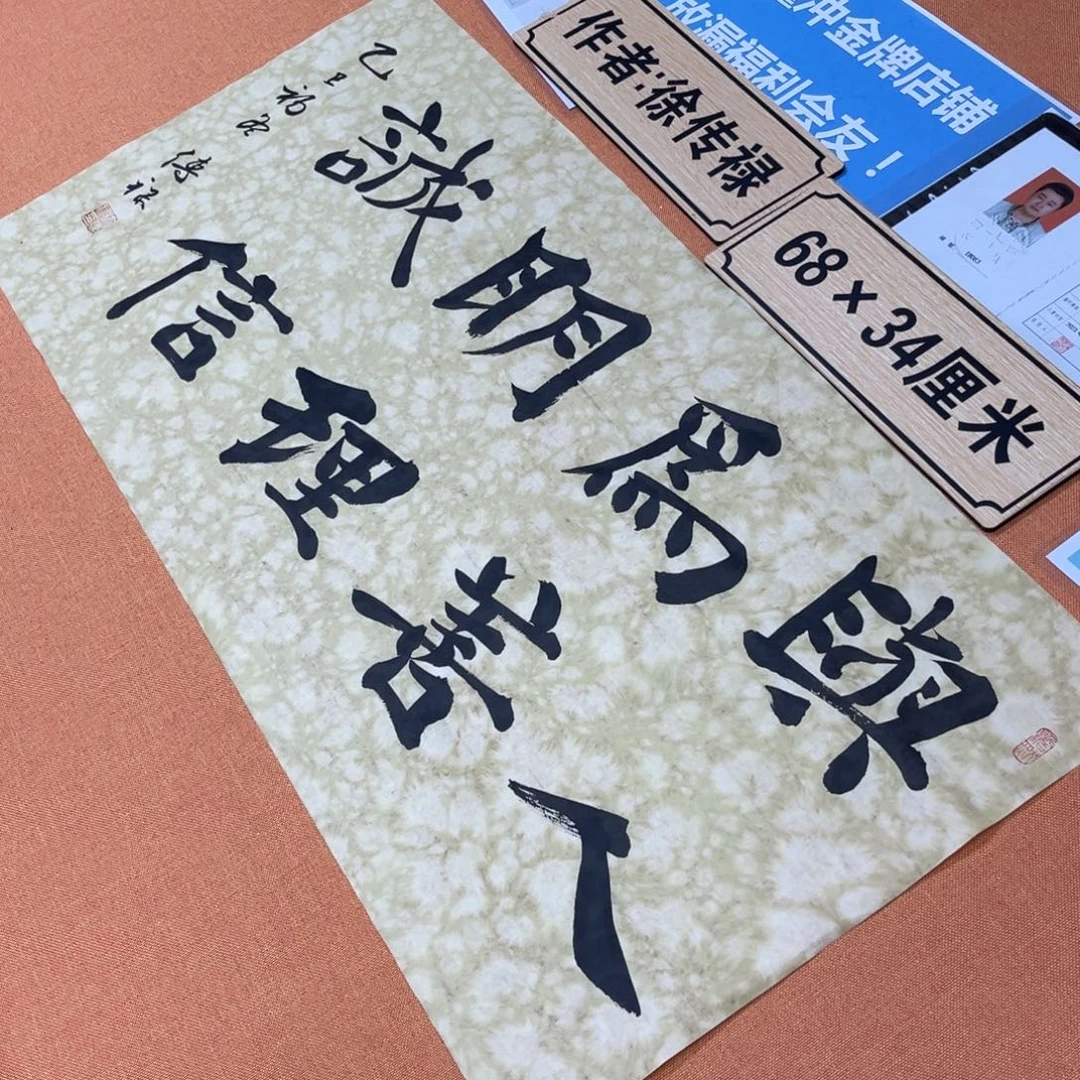 與人
為善
明理
誠信
乙巳初
傳禄
冲金牌店铺
放漏福利会友！
作者:徐传禄
68×34厘米